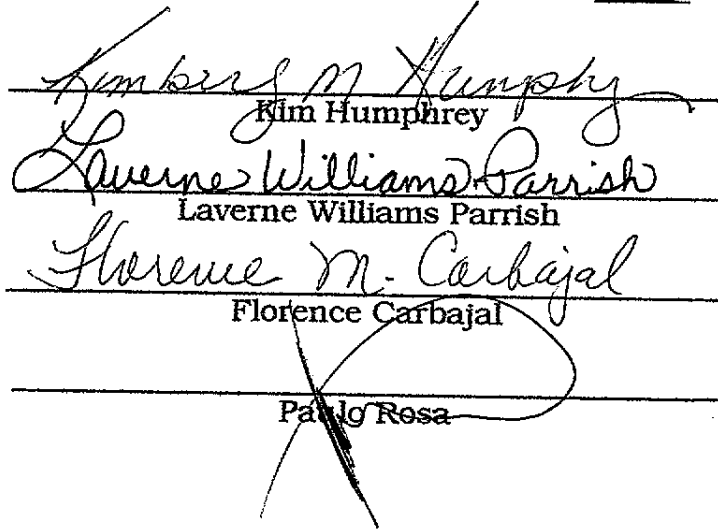 Kimberly M Humphrey
Kim Humphrey
Laverne Williams Parrish
Laverne Williams Parrish
Florence M. Carbajal
Florence Carbajal
Paulo Rosa